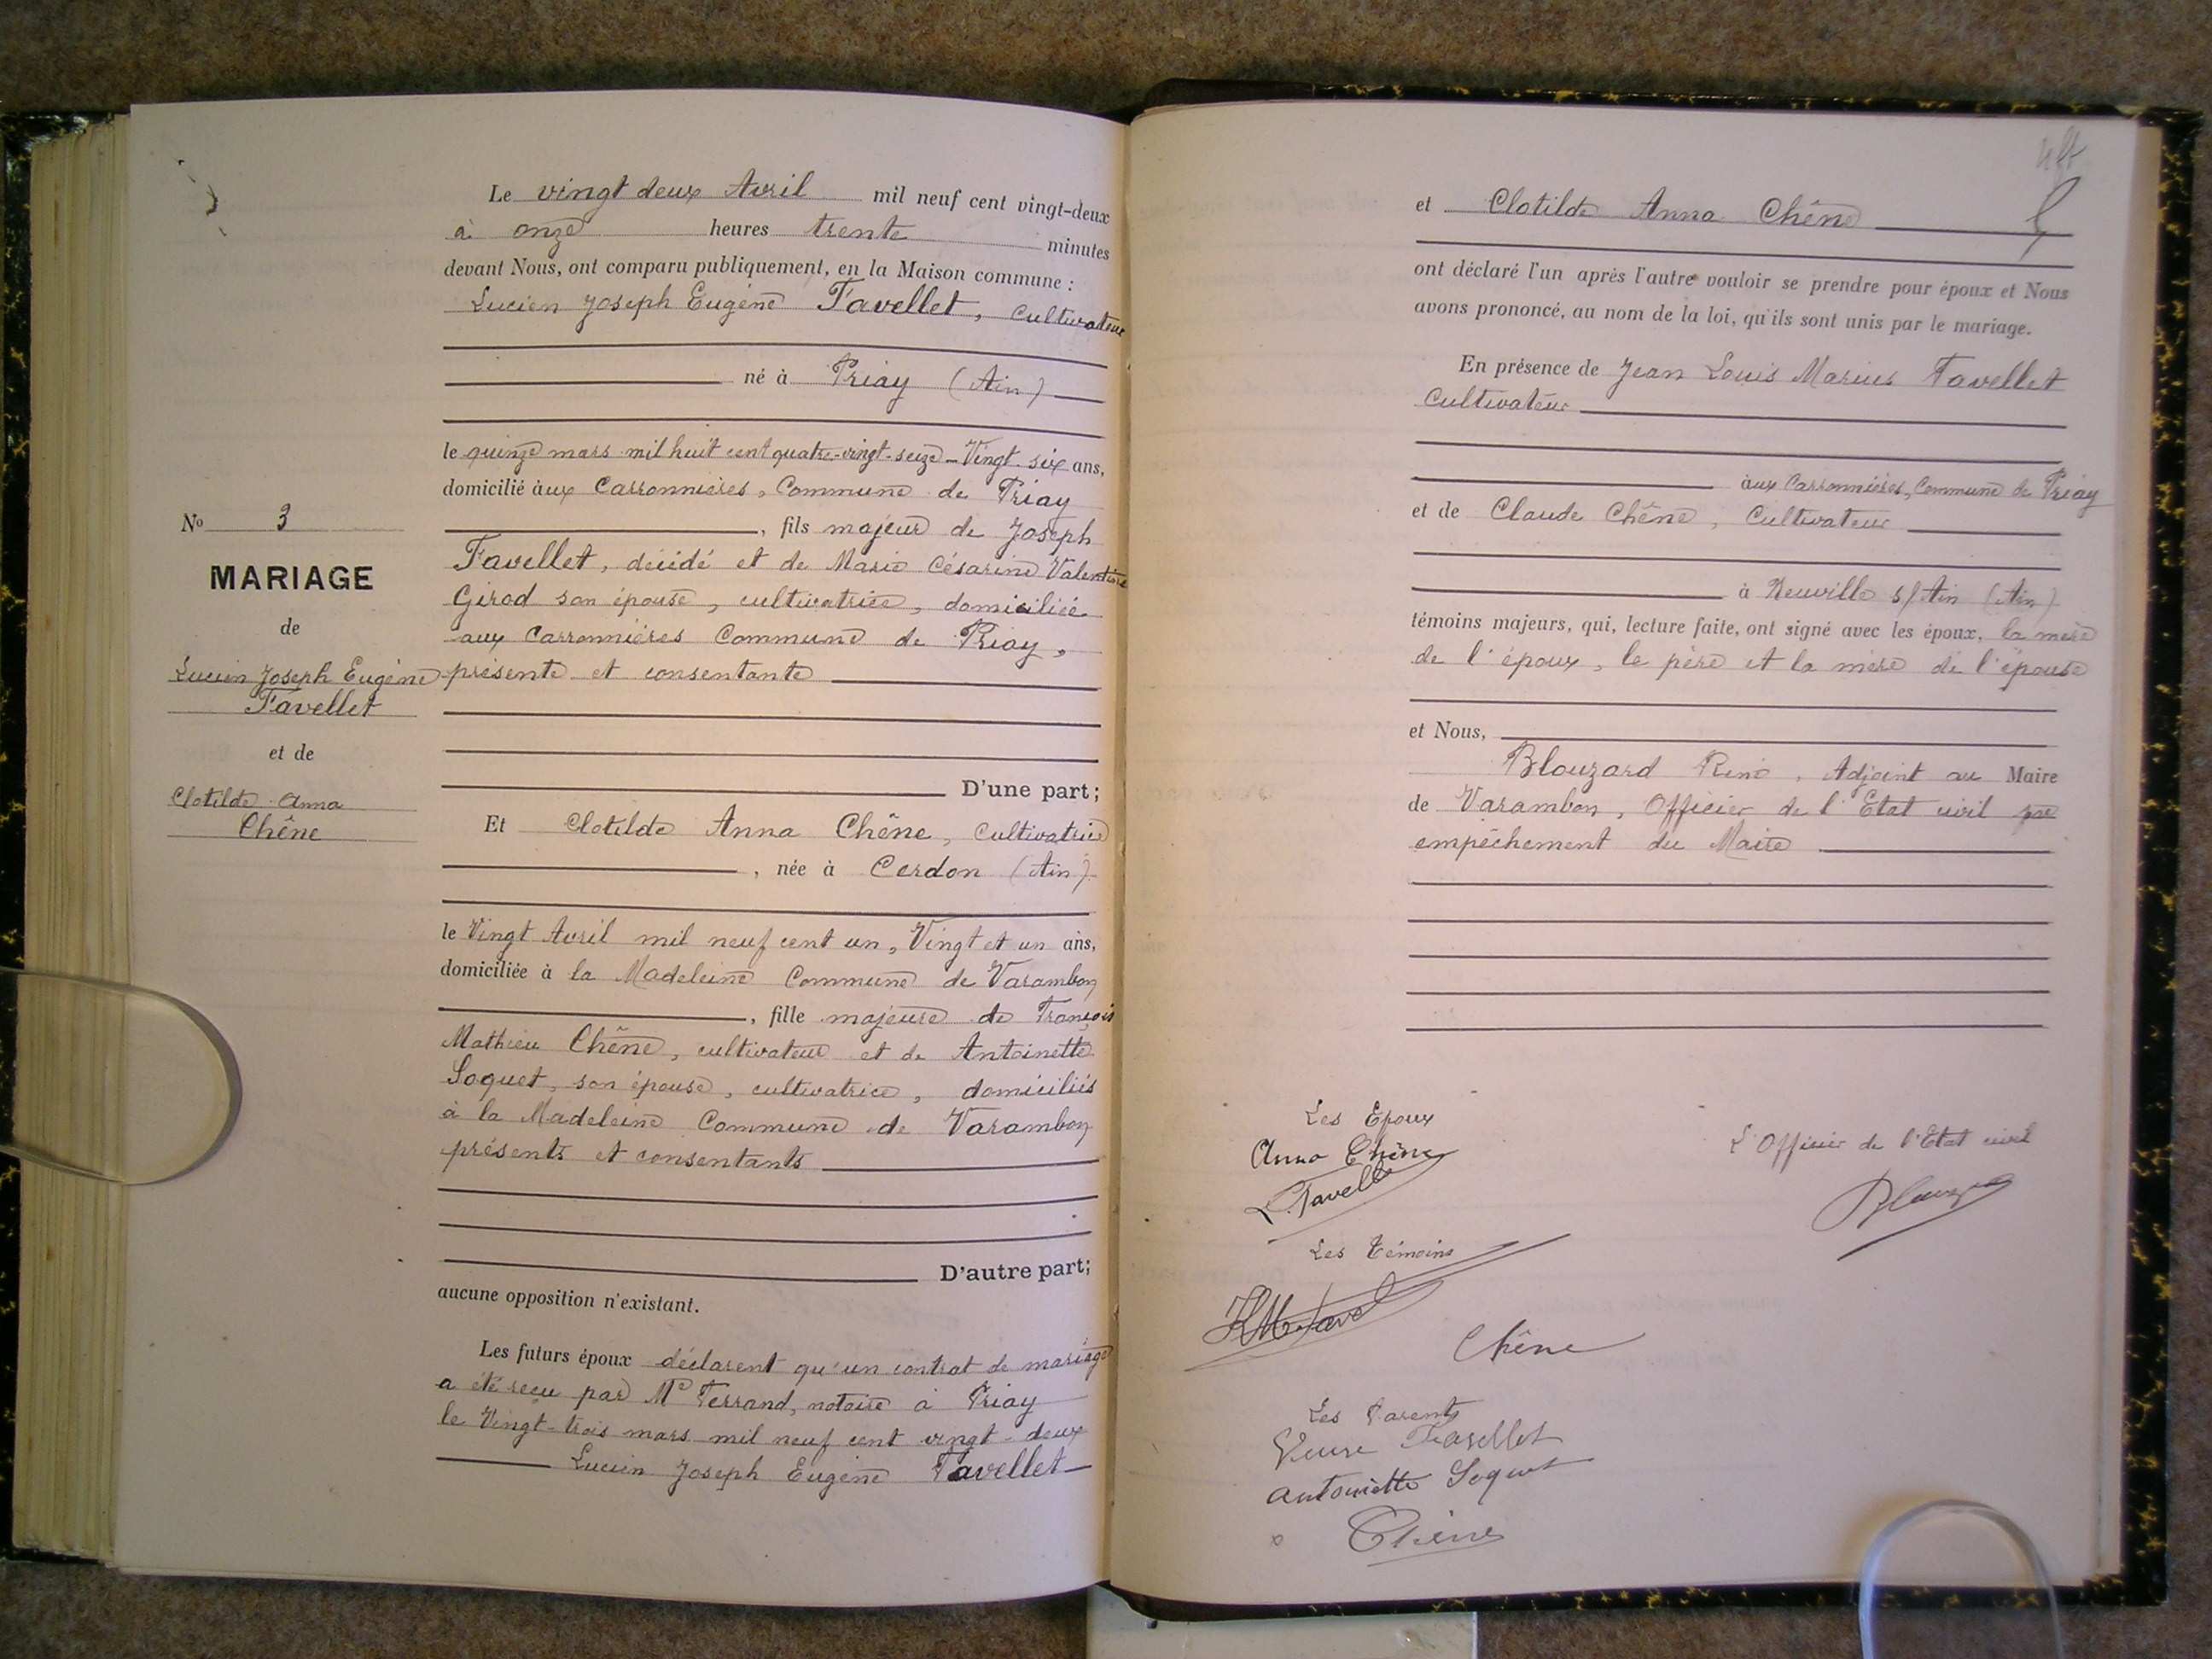 Le vingt deux Avril mil neuf cent vingt-deux
à onze heures trente minutes
devant Nous, ont comparu publiquement, en la Maison commune :
Lucien Joseph Eugène Favellet, Cultivateur
né à Priay (Ain)
le quinze mars mil huit cent quatre-vingt-seize - Vingt-six ans,
domicilié aux Carronnières, Commune de Priay
, fils majeur de Joseph
Favellet, décédé et de Marie Césarine Valentine
Girod son épouse, cultivatrice, domiciliée
aux Carronnières Commune de Priay,
présente et consentante
D'une part;
Et Clotilde Anna Chêne, Cultivatrice
, née à Cerdon (Ain)
le Vingt Avril mil neuf cent un, Vingt et un ans,
domiciliée à la Madeleine Commune de Varambon
, fille majeure de François
Mathieu Chêne, cultivateur et de Antoinette
Soquet, son épouse, cultivatrice, domiciliés
à la Madeleine Commune de Varambon
présents et consentants
D'autre part;
aucune opposition n'existant.
Les futurs époux déclarent qu'un contrat de mariage
a été reçu par Me Ferrand, notaire à Priay
le Vingt-trois mars mil neuf cent vingt-deux
Lucien Joseph Eugène Favellet
No 3
MARIAGE
de
Lucien Joseph Eugène
Favellet
et de
Clotilde Anna
Chêne
et Clotilde Anna Chêne
ont déclaré l'un après l'autre vouloir se prendre pour époux et Nous
avons prononcé, au nom de la loi, qu'ils sont unis par le mariage.
En présence de Jean Louis Marius Favellet
Cultivateur
aux Carronnières, Commune de Priay
et de Claude Chêne, Cultivateur
à Neuville s/Ain (Ain)
témoins majeurs, qui, lecture faite, ont signé avec les époux, la mère
de l'époux, le père et la mère de l'épouse
et Nous,
Blouzard René, Adjoint au Maire
de Varambon, Officier de l'Etat civil par
empêchement du Maire
Les Epoux
Anna Chêne
L. Favellet
L'Officier de l'Etat civil
Blouzard
Les Témoins
Chêne
Les Parents
Veuve Favellet
Antoinette Soquet
Chêne